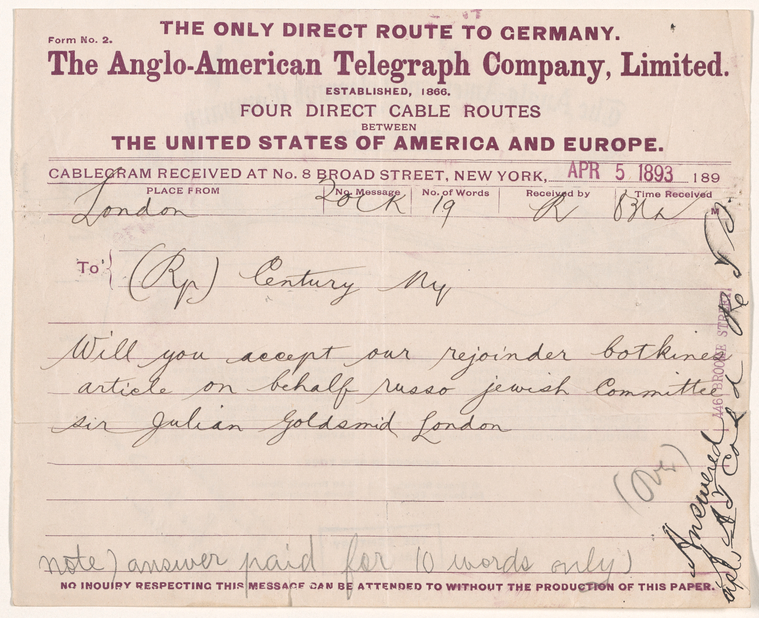 THE ONLY DIRECT ROUTE TO GERMANY.
Form No. 2.
The Anglo-American Telegraph Company, Limited.
ESTABLISHED, 1866.
FOUR DIRECT CABLE ROUTES
BETWEEN
THE UNITED STATES OF AMERICA AND EUROPE.
CABLEGRAM RECEIVED AT No. 8 BROAD STREET, NEW YORK, APR 5 1893 189
PLACE FROM No. Message No. of Words Received by Time Received
London 19 R M
To (Rp) Century Ny
Will you accept our rejoinder botkines
article on behalf russo jewish Committee
sir Julian Goldsmid London
(Over)
note) answer paid for 10 words only)
NO INQUIRY RESPECTING THIS MESSAGE CAN BE ATTENDED TO WITHOUT THE PRODUCTION OF THIS PAPER.
Answered
STREET